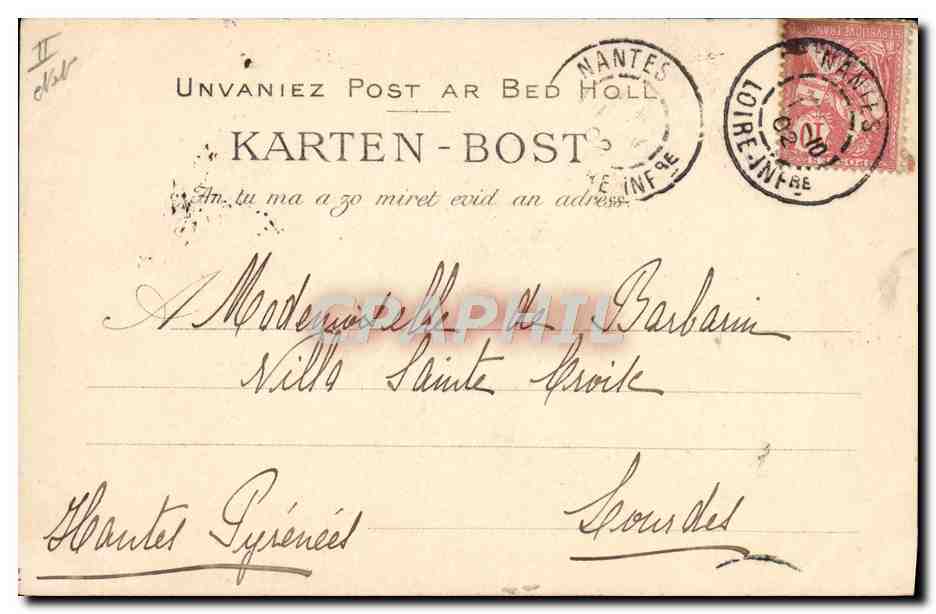 II
UNVANIEZ POST AR BED HOLL
KARTEN-BOST
An tu ma a zo miret evid an adress.
NANTES
RE INFRE
NANTES
10
02
LOIRE-INFRE
REPUBLIQUE FRANC
10
CPAPHIL
A Mademoiselle de Barbarin
Villa Sainte Croix
Lourdes
Hautes Pyrénées